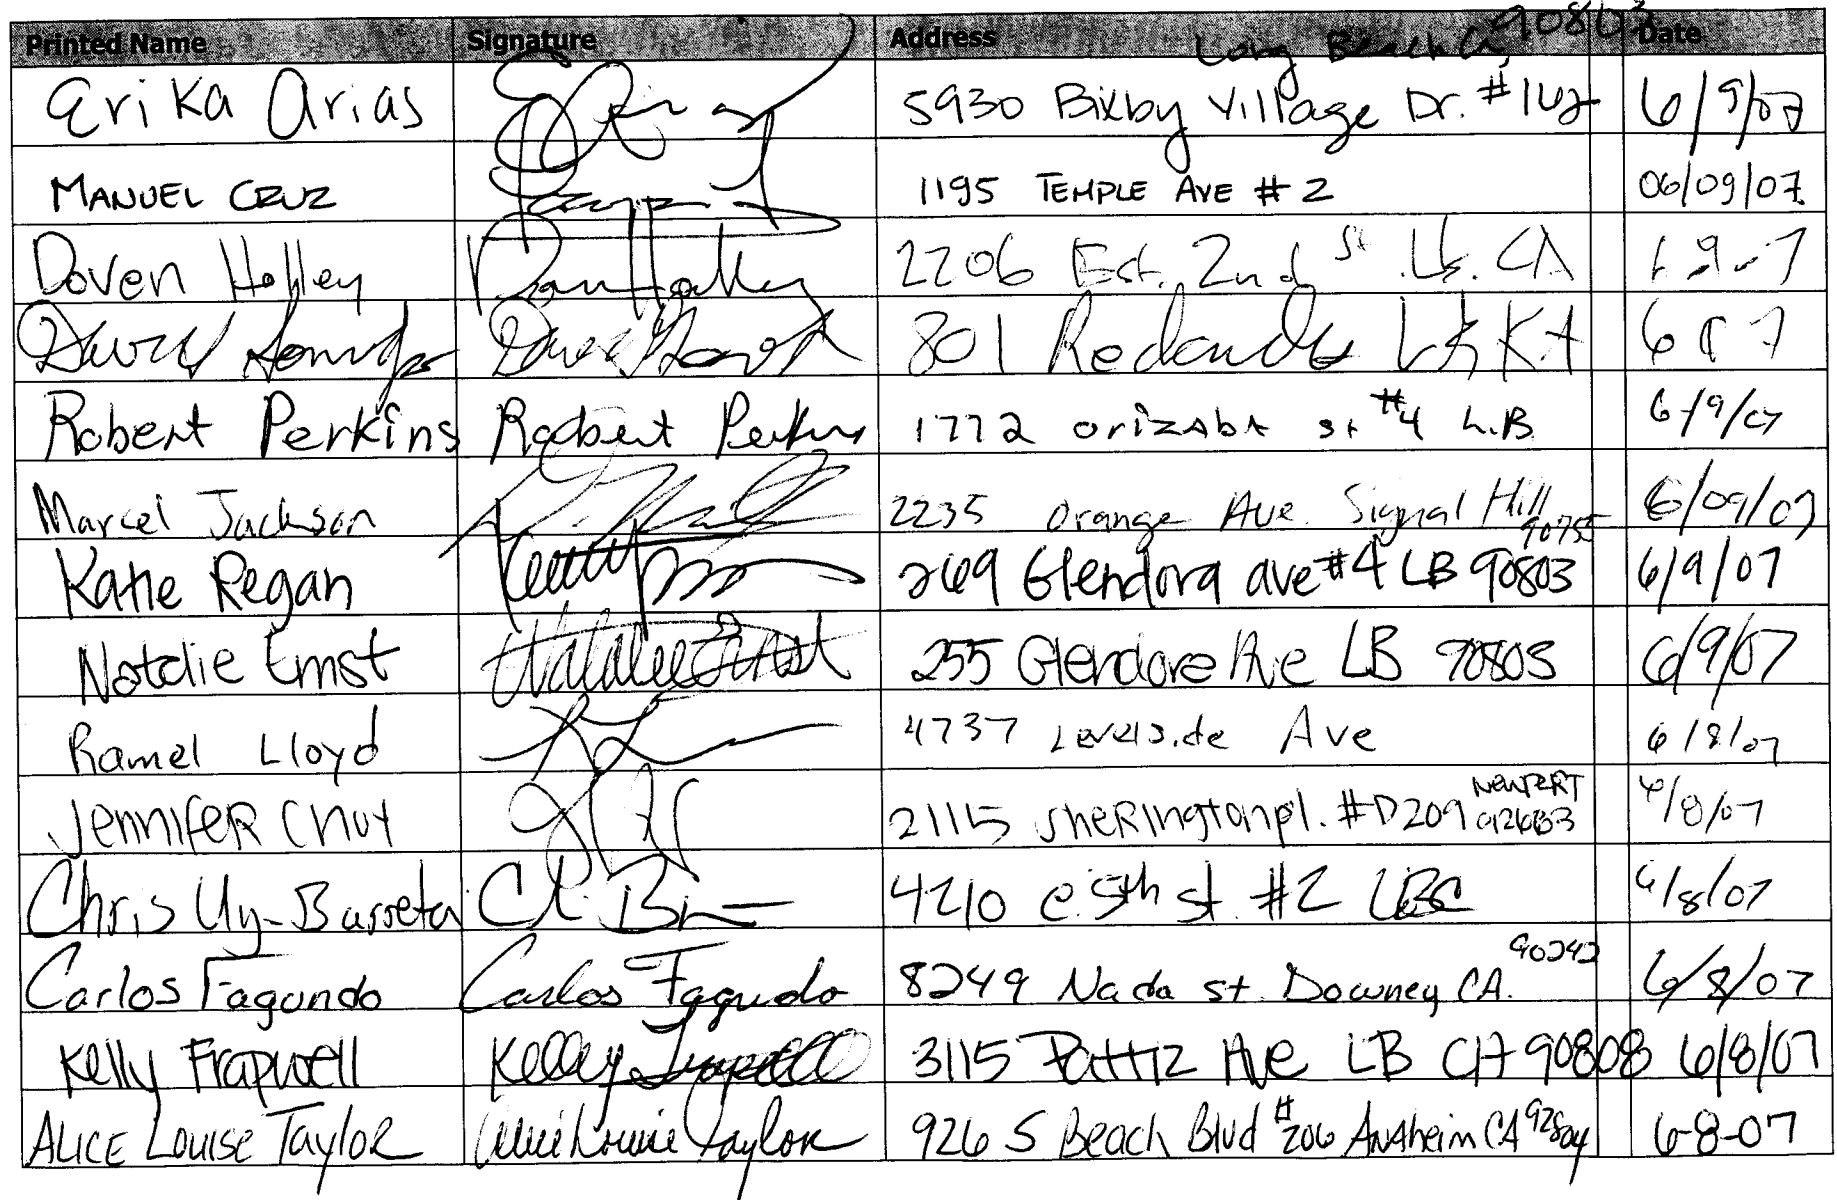 Printed Name Signature Address Date
Long Beach Ca, 90803
Erika Arias 5930 Bixby Village Dr. #162 6/9/07
MANUEL CRUZ 1195 TEMPLE AVE # 2 06/09/07
Doven Holley 2206 Est. 2nd St. Lb. CA 9-7
David 801 Redondo Lb 6 7
Robert Perkins Robert Perkins 1772 orizaba st #4 L.B 6/9/07
Marcel Jackson 2235 Orange Ave. Signal Hill 90755 6/09/07
Katie Regan 269 Glendora ave #4 LB 90803 6/9/07
Natalie Ernst Natalie Ernst 255 Glendora Ave LB 90803 6/9/07
Ramel Lloyd 4737 Levelside Ave 6/8/07
JENNIFER CHUY 21115 SheRIngtonpl. #D209 NEWPORT 92663 6/8/07
Chris Uy-Barreta 4210 e. 5th st. #2 LBC 6/8/07
Carlos Fagundo Carlos Fagundo 8249 Nada st. Downey CA. 90242 6/8/07
Kelly Frapwell Kelly Frapwell 3115 Pattiz Ave LB CA 90808 6/8/07
ALICE LOUISE TAYLOR Alice Louise Taylor 926 S Beach Blvd #206 Anaheim CA 92804 6-8-07